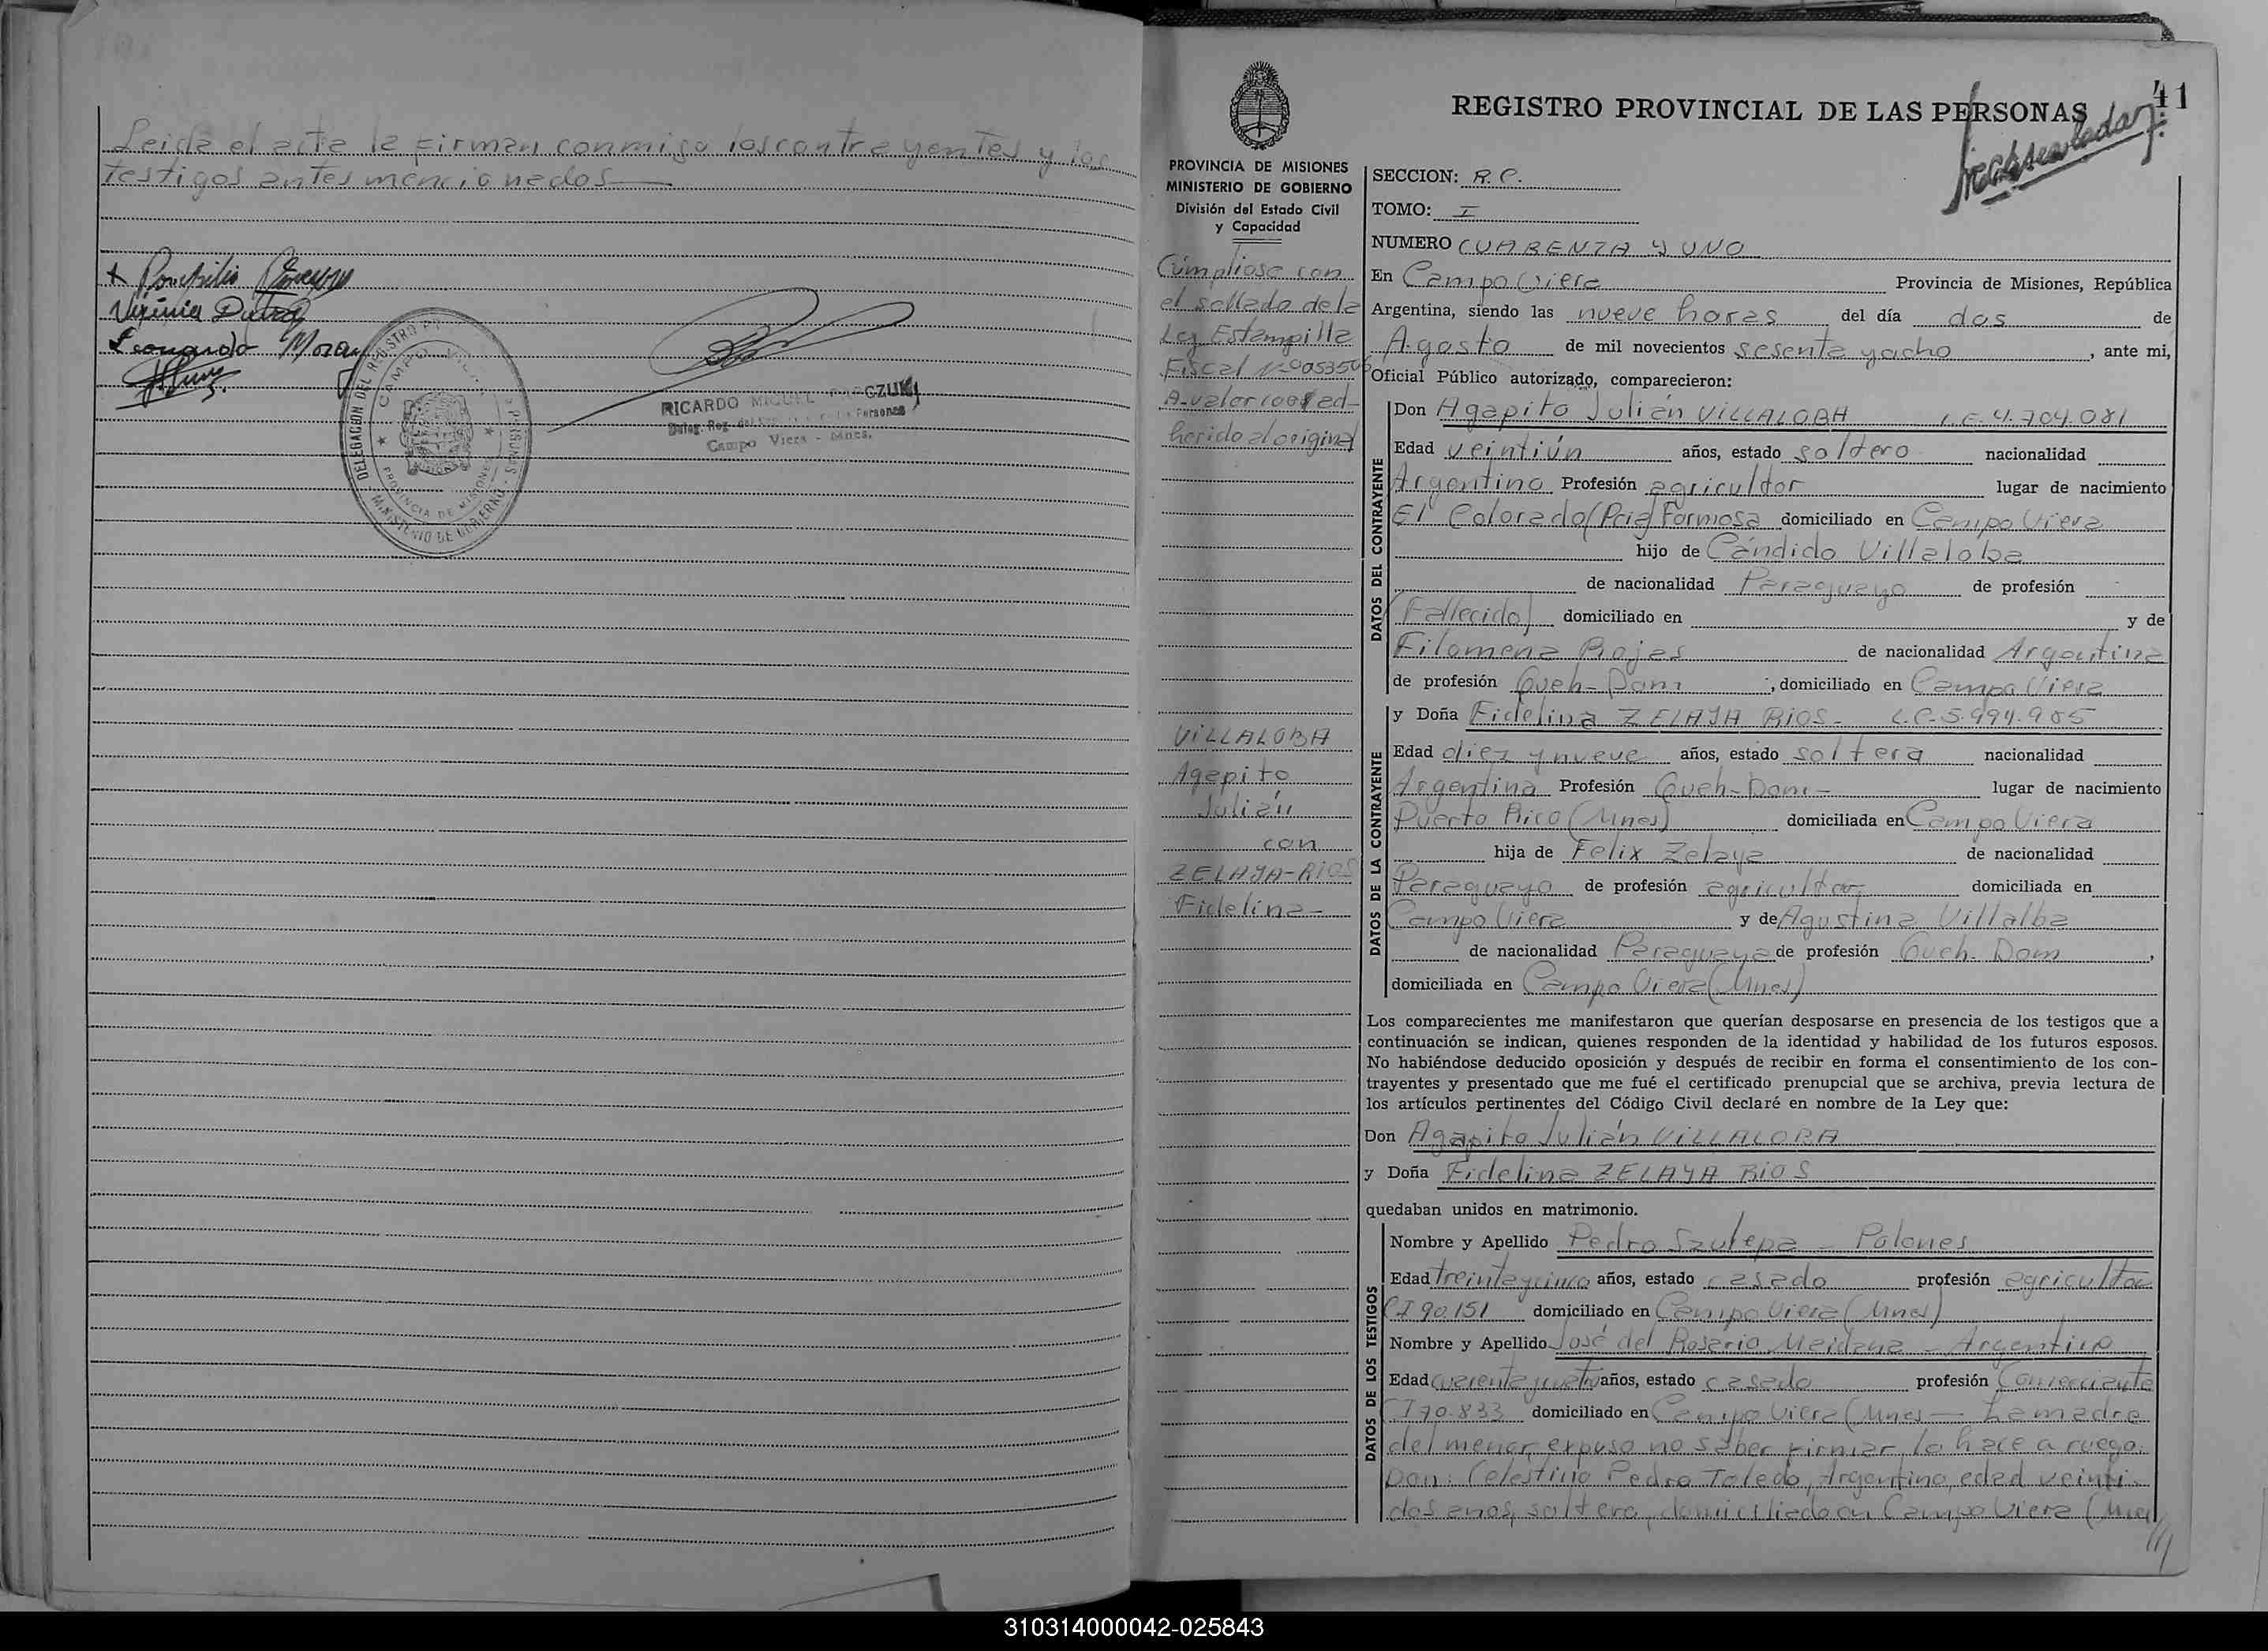 Leida el acta la firman conmigo los contrayentes y los
testigos antes mencionados
Virginia Dutra
Leonardo Moran
DELEGACION DEL REGISTRO P. DE LAS PERSONAS
CAMPO VIERA
PROVINCIA DE MISIONES
MINISTERIO DE GOBIERNO
RICARDO MIGUEL
Deleg. Reg. de las Personas
Campo Viera - Mnes.
41
REGISTRO PROVINCIAL DE LAS PERSONAS
PROVINCIA DE MISIONES
MINISTERIO DE GOBIERNO
División del Estado Civil
y Capacidad
Cúmpliose con
el sellado de la
Ley Estampilla
Fiscal Nº 053506
A-valor 100$ ad-
herido al original
VILLALOBA
Agapito
Julián
con
ZELAYA-RIOS
Fidelina-
SECCION: R. C.
TOMO: I
NUMERO CUARENTA Y UNO
En Campo Viera Provincia de Misiones, República
Argentina, siendo las nueve horas del día dos de
Agosto de mil novecientos sesenta y ocho, ante mi,
Oficial Público autorizado, comparecieron:
DATOS DEL CONTRAYENTE
Don Agapito Julián VILLALOBA L.E. 4.704.081
Edad veintiún años, estado soltero nacionalidad
Argentino Profesión agricultor lugar de nacimiento
El Colorado (Pcia) Formosa domiciliado en Campo Viera
hijo de Cándido Villaloba
de nacionalidad Paraguayo de profesión
(Fallecido) domiciliado en y de
Filomena Rojas de nacionalidad Argentina
de profesión Queh-Dom, domiciliado en Campo Viera
DATOS DE LA CONTRAYENTE
y Doña Fidelina ZELAYA RIOS- L.C-5.994.985
Edad diez y nueve años, estado soltera nacionalidad
Argentina Profesión Queh-Dom- lugar de nacimiento
Puerto Rico (Mnes) domiciliada en Campo Viera
hija de Felix Zelaya de nacionalidad
Paraguayo de profesión agricultor domiciliada en
Campo Viera y de Agustina Villalba
de nacionalidad Paraguaya de profesión Queh. Dom,
domiciliada en Campo Viera (Mnes)
Los comparecientes me manifestaron que querían desposarse en presencia de los testigos que a
continuación se indican, quienes responden de la identidad y habilidad de los futuros esposos.
No habiéndose deducido oposición y después de recibir en forma el consentimiento de los con-
trayentes y presentado que me fué el certificado prenupcial que se archiva, previa lectura de
los artículos pertinentes del Código Civil declaré en nombre de la Ley que:
Don Agapito Julián VILLALOBA
y Doña Fidelina ZELAYA RIOS
quedaban unidos en matrimonio.
DATOS DE LOS TESTIGOS
Nombre y Apellido Pedro Szulepa - Polones
Edad treinta y cinco años, estado casado profesión agricultor
CI 90.151 domiciliado en Campo Viera (Mnes)
Nombre y Apellido José del Rosario Maidana - Argentino
Edad cuarenta y cuatro años, estado casado profesión Comerciante
CI 70.833 domiciliado en Campo Viera (Mnes- La madre
del menor, expuso no saber firmar lo hace a ruego
Don: Celestino Pedro Toledo, Argentino, edad veinti-
dos anos, soltero, domiciliado en Campo Viera (Mnes)
///
310314000042-025843